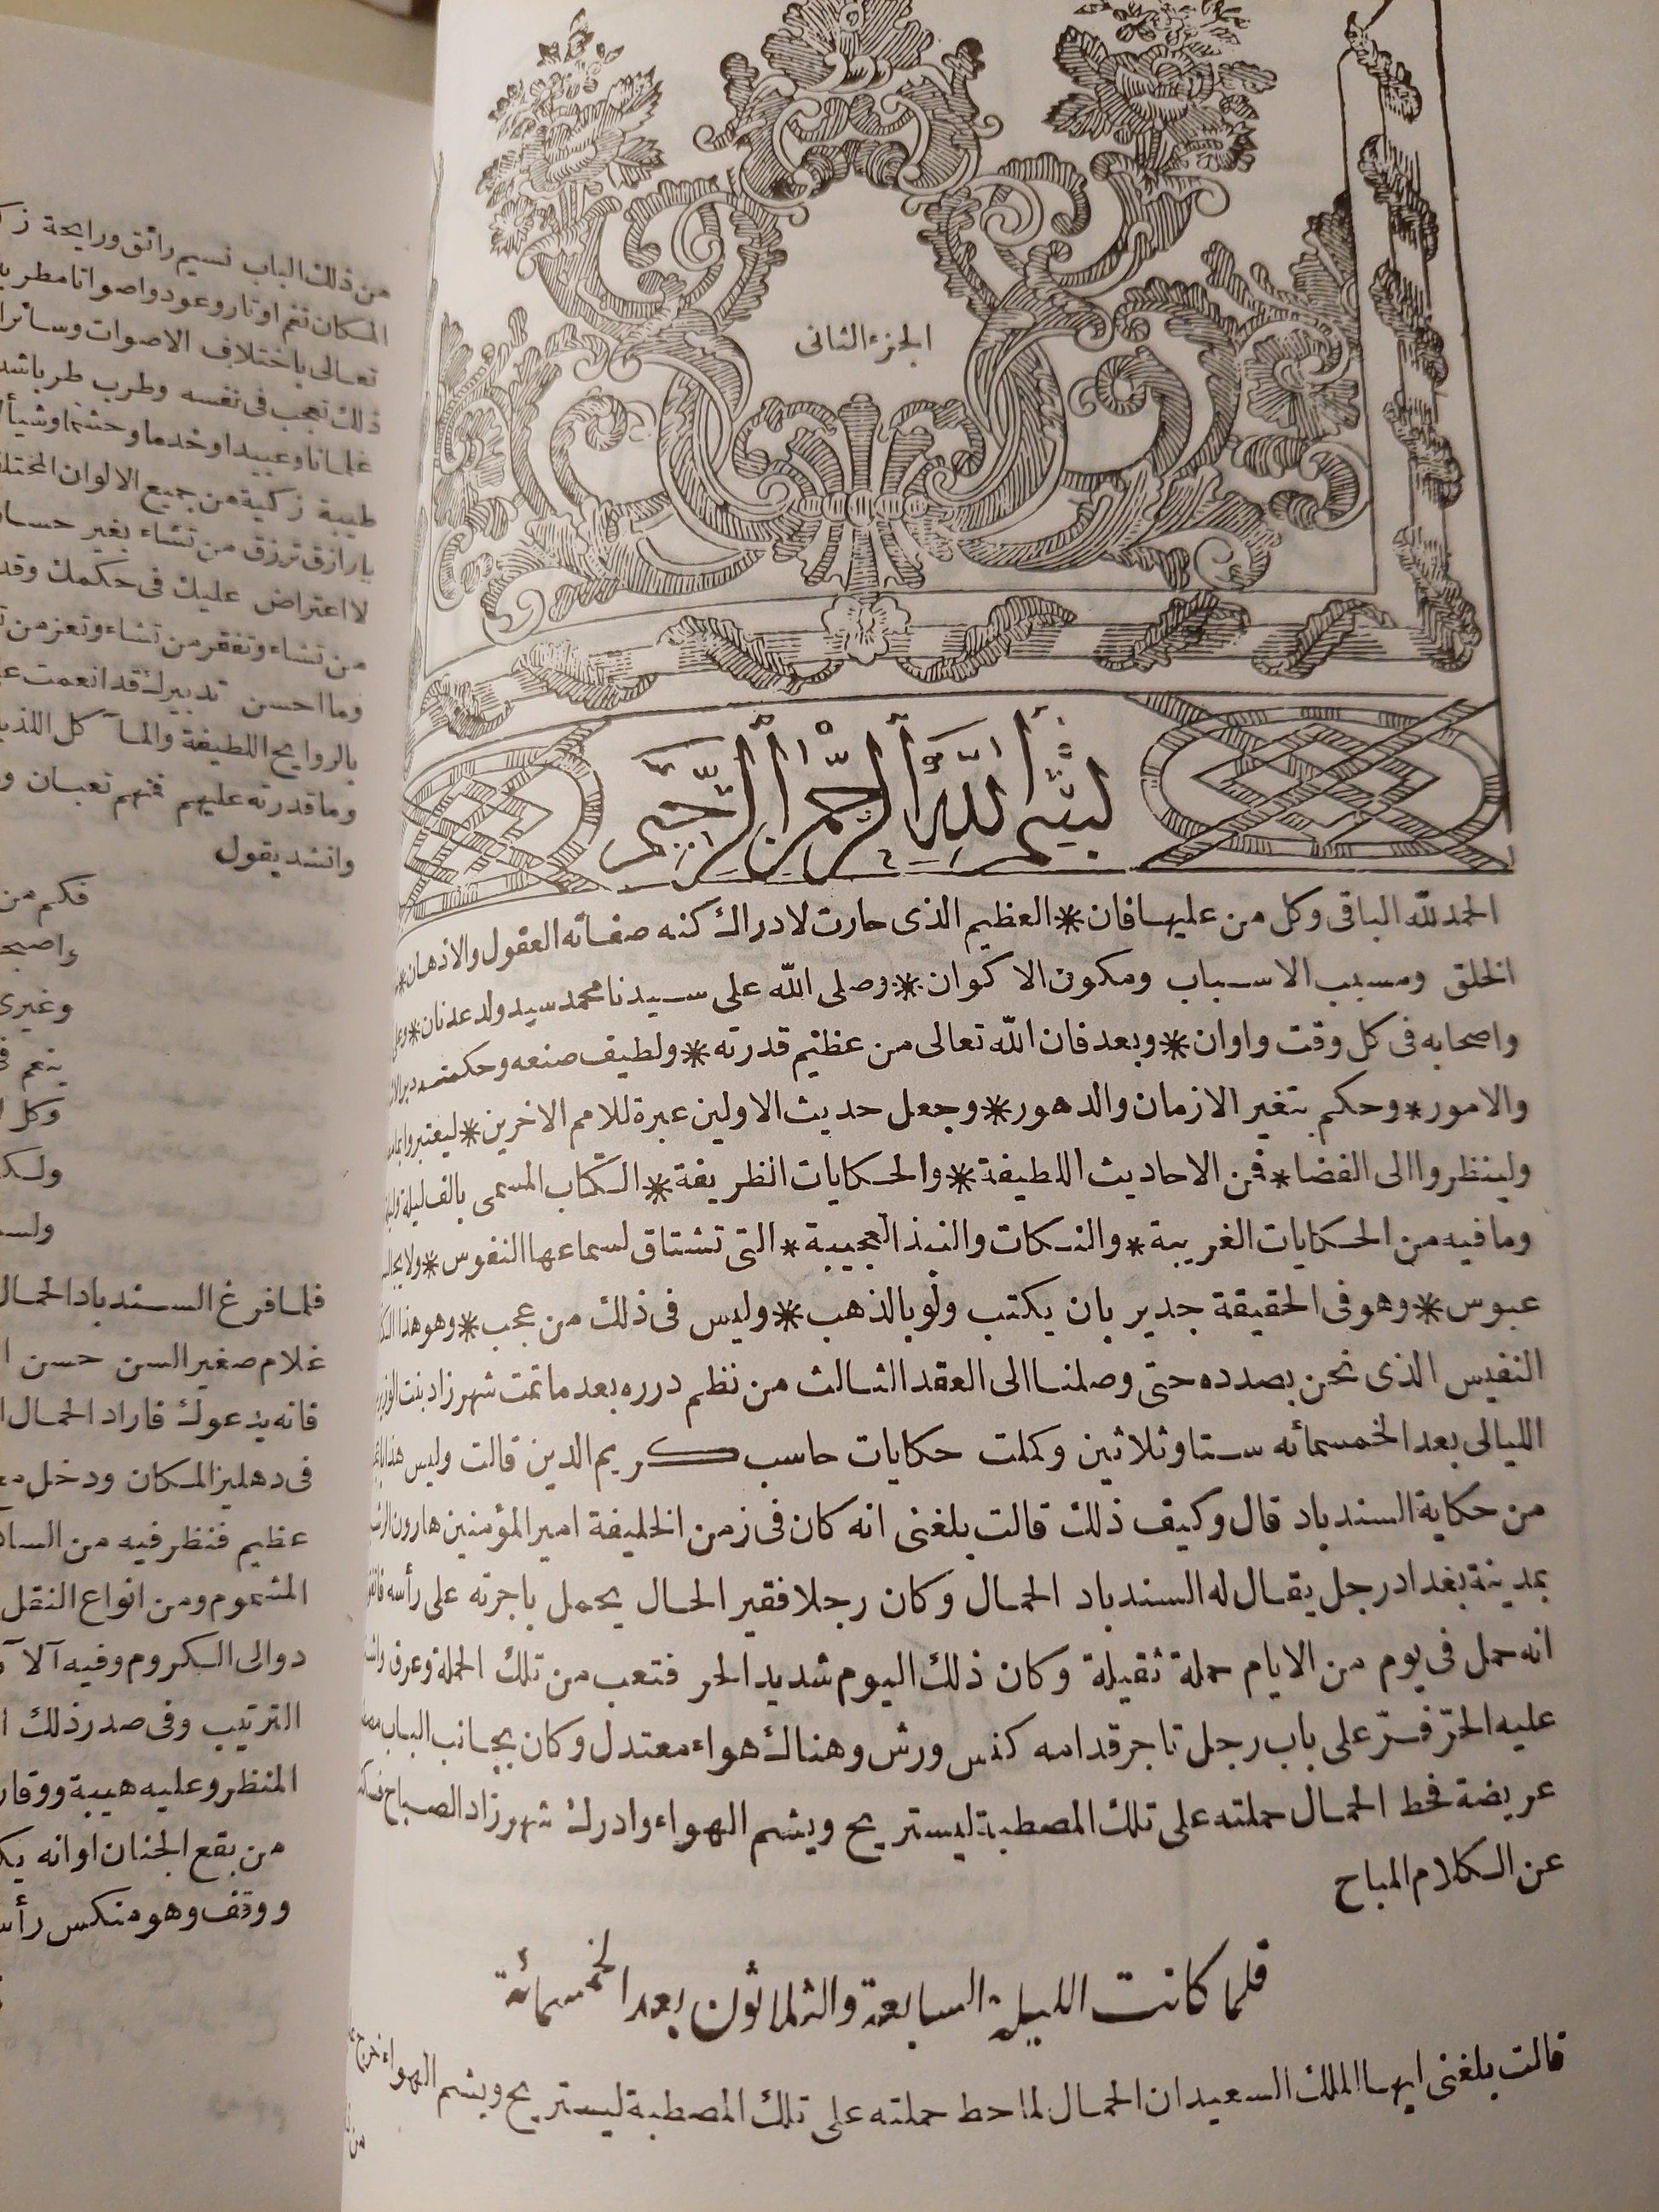 الجزء الثانى
بسم الله الرحمن الرحيم
الحمد لله الباقى وكل من عليها فان * العظيم الذى حارت لادراك كنه صفاته العقول والاذهان *
الخلق ومسبب الاسباب ومكون الاكوان * وصلى الله على سيدنا محمد سيد ولد عدنان *
واصحابه فى كل وقت واوان * وبعد فان الله تعالى من عظيم قدرته * ولطيف صنعه وحكمته
والامور * وحكم بتغير الازمان والدهور * وجعل حديث الاولين عبرة للامم الاخرين * ليعتبروا
ولينظروا الى الفضا * فمن الاحاديث اللطيفة * والحكايات الظريفة * الكتاب المسمى بالف ليلة
وما فيه من الحكايات الغريبة * والنكات والنبذ العجيبة * التى تشتاق لسماعها النفوس *
عبوس * وهو فى الحقيقة جدير بان يكتب ولو بالذهب * وليس فى ذلك من عجب * وهو هذا
النفيس الذى نحن بصدده حتى وصلنا الى العقد الثالث من نظم درره بعد ما تمت شهرزاد بنت الوزير
الليالى بعد الخمسمائه ستا وثلاثين وكملت حكايات حاسب كريم الدين قالت وليس هذا
من حكاية السندباد قال وكيف ذلك قالت بلغنى انه كان فى زمن الخليفة امير المؤمنين هارون
بمدينة بغداد رجل يقال له السندباد الحمال وكان رجلا فقير الحال يحمل باجرته على رأسه
انه حمل فى يوم من الايام حملة ثقيلة وكان ذلك اليوم شديد الحر فتعب من تلك الحملة وعرق
عليه الحرّ فمرّ على باب رجل تاجر قدامه كنس ورش وهناك هواء معتدل وكان بجانب الباب
عريضة فحط الحمال حملته على تلك المصطبة ليستريح ويشم الهواء وادرك شهرزاد الصباح
عن الكلام المباح
فلما كانت الليلة السابعة والثلاثون بعد الخمسمائة
قالت بلغنى ايها الملك السعيد ان الحمال لما حط حملته على تلك المصطبة ليستريح ويشم الهواء
من ذلك الباب نسيم رائق ورايحة
المكان نغم اوتار وعود واصواتا
تعالى باختلاف الاصوات
ذلك تعجب فى نفسه وطرب طربا
غلمانا وعبيدا وخدما وحشما وشيأ
طيبة زكية من جميع الالوان
يا رازق ترزق من تشاء بغير
لا اعتراض عليك فى حكمك
من تشاء وتفقر من تشاء وتعز من
وما احسن تدبيرك قد انعمت
بالروايح اللطيفة والمآكل
وما قدرته عليهم فمنهم تعبان
وانشد يقول
فكم من
وغيرى
ينعم
وكل
فلما فرغ السندباد الحمال
غلام صغير السن حسن
فانه يدعوك فاراد الحمال
فى دهليز المكان ودخل
عظيم فنظر فيه من
المشموم ومن انواع النقل
دوالى الكروم وفيه
الترتيب وفى صدر ذلك
المنظر وعليه هيبة ووقار
من بقع الجنان او انه
ووقف وهو منكس